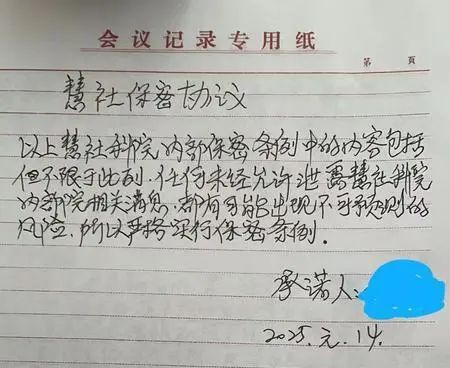 会议记录专用纸
第 頁
慧社保密协议
以上慧社科院内部保密条例中的内容包括
但不限于此列.任何未经允许泄露慧社科院
内部院相关消息.都有可能出现不可预测的
风险.所以严格实行保密条例.
承诺人:
2025.元.14.